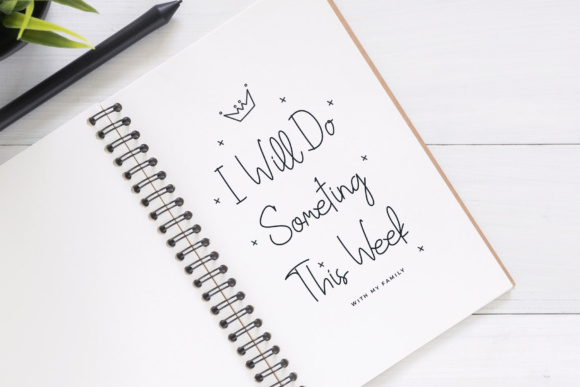 I Will Do
Someting
This Week
WITH MY FAMILY